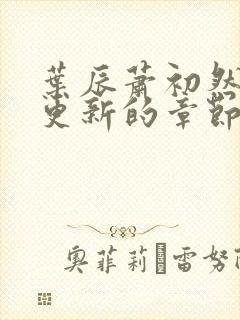 葉辰蕭初然
更新的章節
奧菲莉 雷努